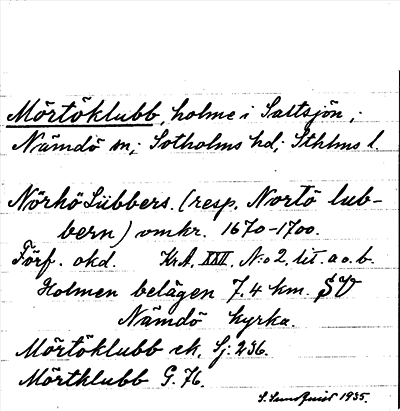 Mörtöklubb, holme i Saltsjön,;
Nämdö sn; Sotholms hd; Sthlms l.
Nörhö Lübbers. (resp. Nortö lub-
bern) omkr. 1670-1700.
Förf. okd. Kr.A. XXII. N:o 2. lit. a o. b.
Holmen belägen 7.4 km. SV
Nämdö kyrka.
Mörtöklubb ek. Sj: 236.
Mörtklubb G. 76.
S. Sundquist 1935.